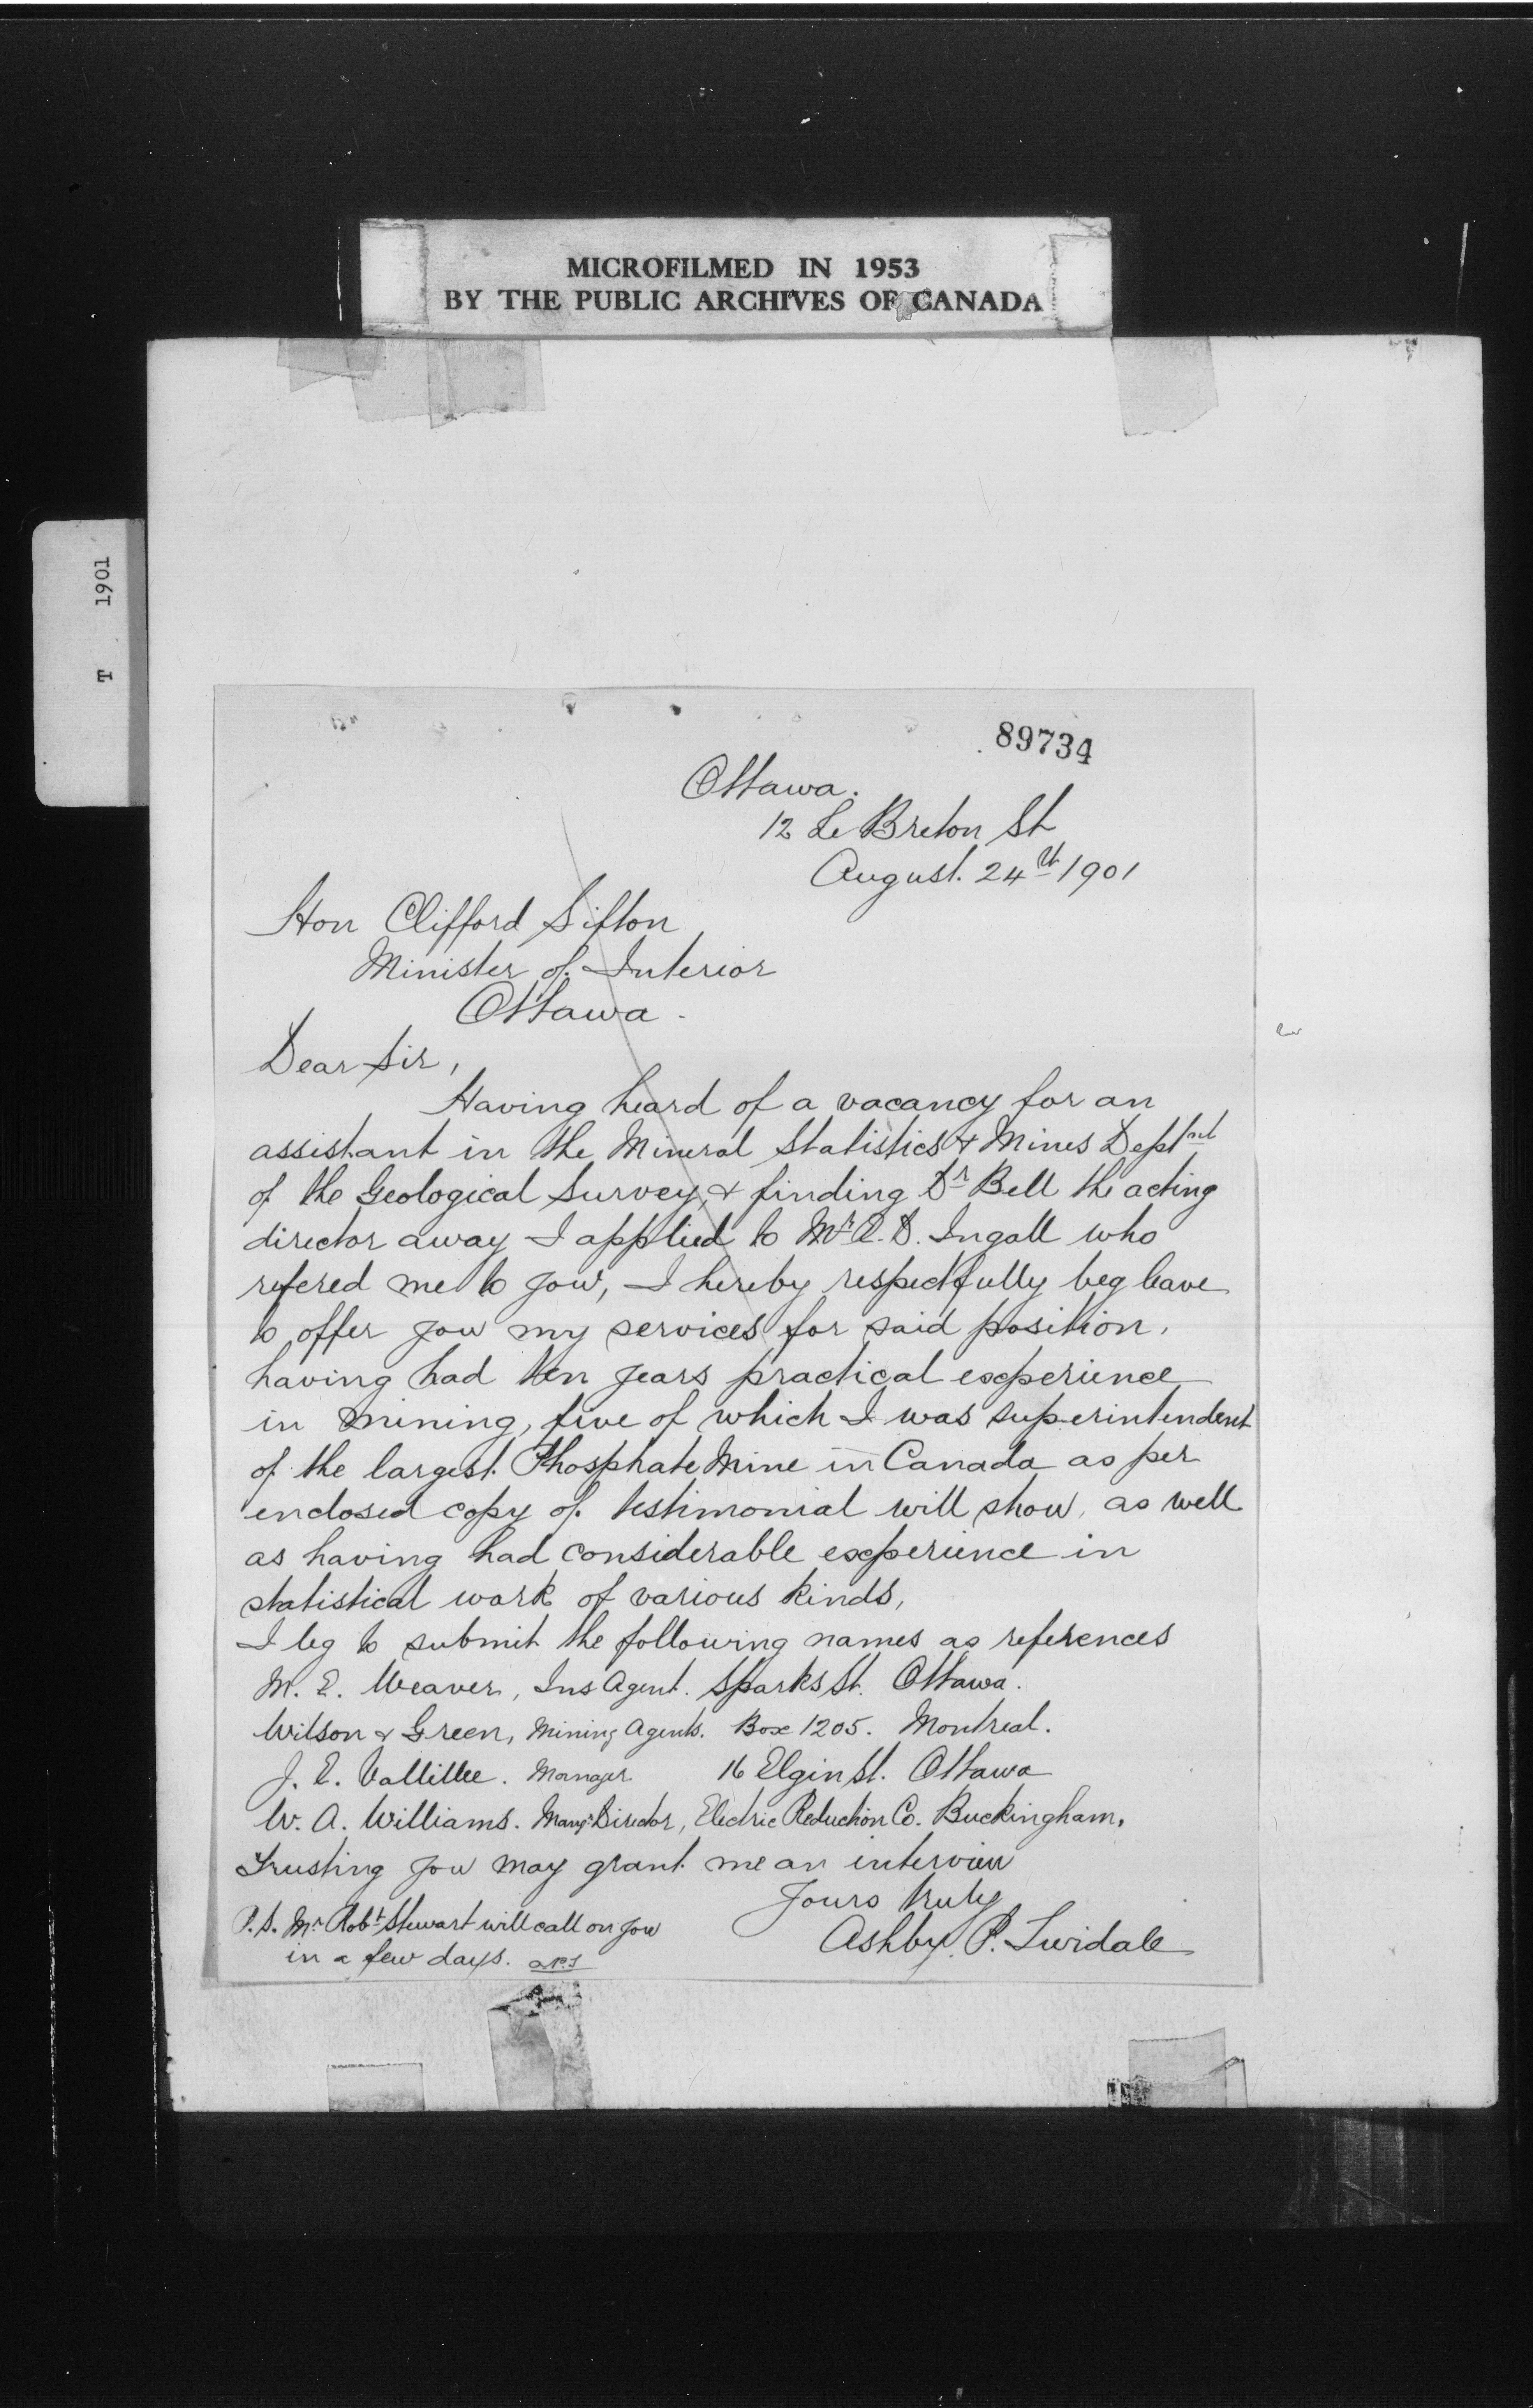 MICROFILMED IN 1953
BY THE PUBLIC ARCHIVES OF CANADA
T 1901
89734
Ottawa.
12 Le Breton St
August. 24th 1901
Hon Clifford Sifton
Minister of Interior
Ottawa.
Dear Sir,
Having heard of a vacancy for an
assistant in the Mineral Statistics & Mines Deptmt
of the Geological Survey, & finding Dr Bell the acting
director away I applied to Mr E. D. Ingall who
refered me to you, I hereby respectfully beg leave
to offer you my services for said position,
having had ten years practical experience
in mining, five of which I was superintendent
of the largest Phosphate Mine in Canada as per
enclosed copy of testimonial will show, as well
as having had considerable experience in
statistical work of various kinds,
I beg to submit the following names as references
M. E. Weaver, Ins Agent. Sparks St. Ottawa.
Wilson & Green, Mining Agents. Box 1205. Montreal.
J. E. Vallillee. Manager 16 Elgin St. Ottawa
W. A. Williams. Mang. Director, Electric Reduction Co. Buckingham.
Trusting you may grant me an interview
Yours truly
Ashby. P. Twidale
P.S. Mr Robt Stewart will call on you
in a few days. APT